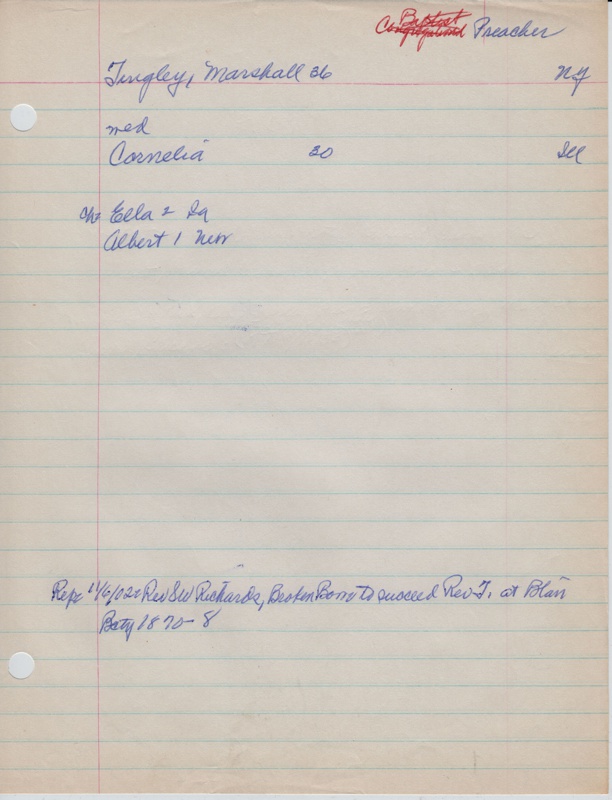 Baptist
Congregational Preacher
Tingley, Marshall 36 NY
med
Cornelia 30 Ill
ch: Ella 2 Ia
Albert 1 New
Rep: 11/6/02: Rev SW Richards, Broken Bow to succeed Rev T. at Blair
Baty 1870-8